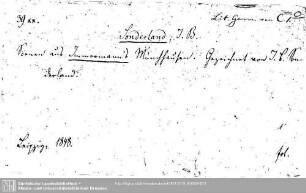 39 xx. Lit. Germ. rec. C
Sonderland, J. B.
Scenen aus Immermann's Münchhausen. Gezeichnet von J. B. Son-
derland.
Leipzig. 1848. fol.
Sächsische Landesbibliothek -
Staats- und Universitätsbibliothek Dresden